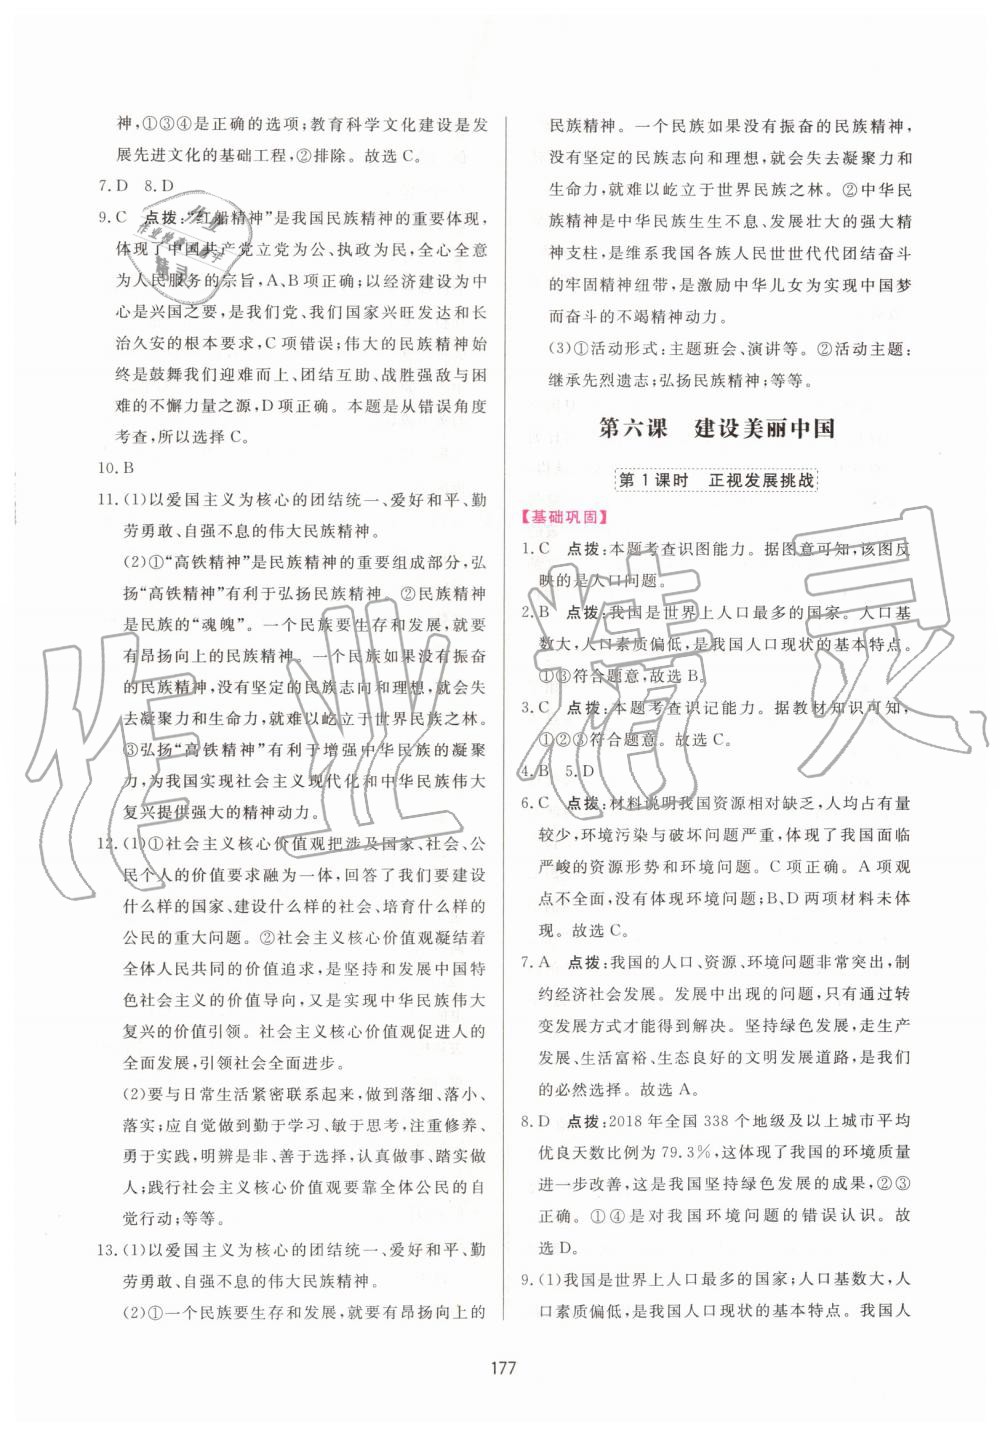 神,①③④是正确的选项;教育科学文化建设是发
展先进文化的基础工程,②排除。故选C。
7. D  8. D
9. C  点拨:“红船精神”是我国民族精神的重要体现,
体现了中国共产党立党为公、执政为民,全心全意
为人民服务的宗旨,A、B项正确;以经济建设为中
心是兴国之要,是我们党、我们国家兴旺发达和长
治久安的根本要求,C项错误;伟大的民族精神始
终是鼓舞我们迎难而上、团结互助、战胜强敌与困
难的不懈力量之源,D项正确。本题是从错误角度
考查,所以选择C。
10. B
11. (1)以爱国主义为核心的团结统一、爱好和平、勤
劳勇敢、自强不息的伟大民族精神。
(2)①“高铁精神”是民族精神的重要组成部分,弘
扬“高铁精神”有利于弘扬民族精神。②民族精神
是民族的“魂魄”。一个民族要生存和发展,就要
有昂扬向上的民族精神。一个民族如果没有振奋
的民族精神,没有坚定的民族志向和理想,就会失
去凝聚力和生命力,就难以屹立于世界民族之林。
③弘扬“高铁精神”有利于增强中华民族的凝聚
力,为我国实现社会主义现代化和中华民族伟大
复兴提供强大的精神动力。
12. (1)①社会主义核心价值观把涉及国家、社会、公
民个人的价值要求融为一体,回答了我们要建设
什么样的国家、建设什么样的社会、培育什么样的
公民的重大问题。②社会主义核心价值观凝结着
全体人民共同的价值追求,是坚持和发展中国特
色社会主义的价值导向,又是实现中华民族伟大
复兴的价值引领。社会主义核心价值观促进人的
全面发展,引领社会全面进步。
(2)要与日常生活紧密联系起来,做到落细、落小、
落实;应自觉做到勤于学习、敏于思考,注重修养、
勇于实践,明辨是非、善于选择,认真做事、踏实做
人;践行社会主义核心价值观要靠全体公民的自
觉行动;等等。
13. (1)以爱国主义为核心的团结统一、爱好和平、勤
劳勇敢、自强不息的伟大民族精神。
(2)①一个民族要生存和发展,就要有昂扬向上的
民族精神。一个民族如果没有振奋的民族精神,
没有坚定的民族志向和理想,就会失去凝聚力和
生命力,就难以屹立于世界民族之林。②中华民
族精神是中华民族生生不息、发展壮大的强大精
神支柱,是维系我国各族人民世世代代团结奋斗
的牢固精神纽带,是激励中华儿女为实现中国梦
而奋斗的不竭精神动力。
(3)①活动形式:主题班会、演讲等。②活动主题:
继承先烈遗志;弘扬民族精神;等等。
第六课  建设美丽中国
第1课时  正视发展挑战
【基础巩固】
1. C  点拨:本题考查识图能力。据图意可知,该图反
映的是人口问题。
2. B  点拨:我国是世界上人口最多的国家。人口基
数大,人口素质偏低,是我国人口现状的基本特点。
①③符合题意,故选B。
3. C  点拨:本题考查识记能力。据教材知识可知,
①②③符合题意。故选C。
4. B  5. D
6. C  点拨:材料说明我国资源相对缺乏,人均占有量
较少,环境污染与破坏问题严重,体现了我国面临
严峻的资源形势和环境问题。C项正确。A项观
点不全面,没有体现环境问题;B、D两项材料未体
现。故选C。
7. A  点拨:我国的人口、资源、环境问题非常突出,制
约经济社会发展。发展中出现的问题,只有通过转
变发展方式才能得到解决。坚持绿色发展,走生产
发展、生活富裕、生态良好的文明发展道路,是我们
的必然选择。故选A。
8. D  点拨:2018年全国338个地级及以上城市平均
优良天数比例为79.3%,这体现了我国的环境质量
进一步改善,这是我国坚持绿色发展的成果,②③
正确。①④是对我国环境问题的错误认识。故
选D。
9. (1)我国是世界上人口最多的国家;人口基数大,人
口素质偏低,是我国人口现状的基本特点。我国人
177
作业精灵